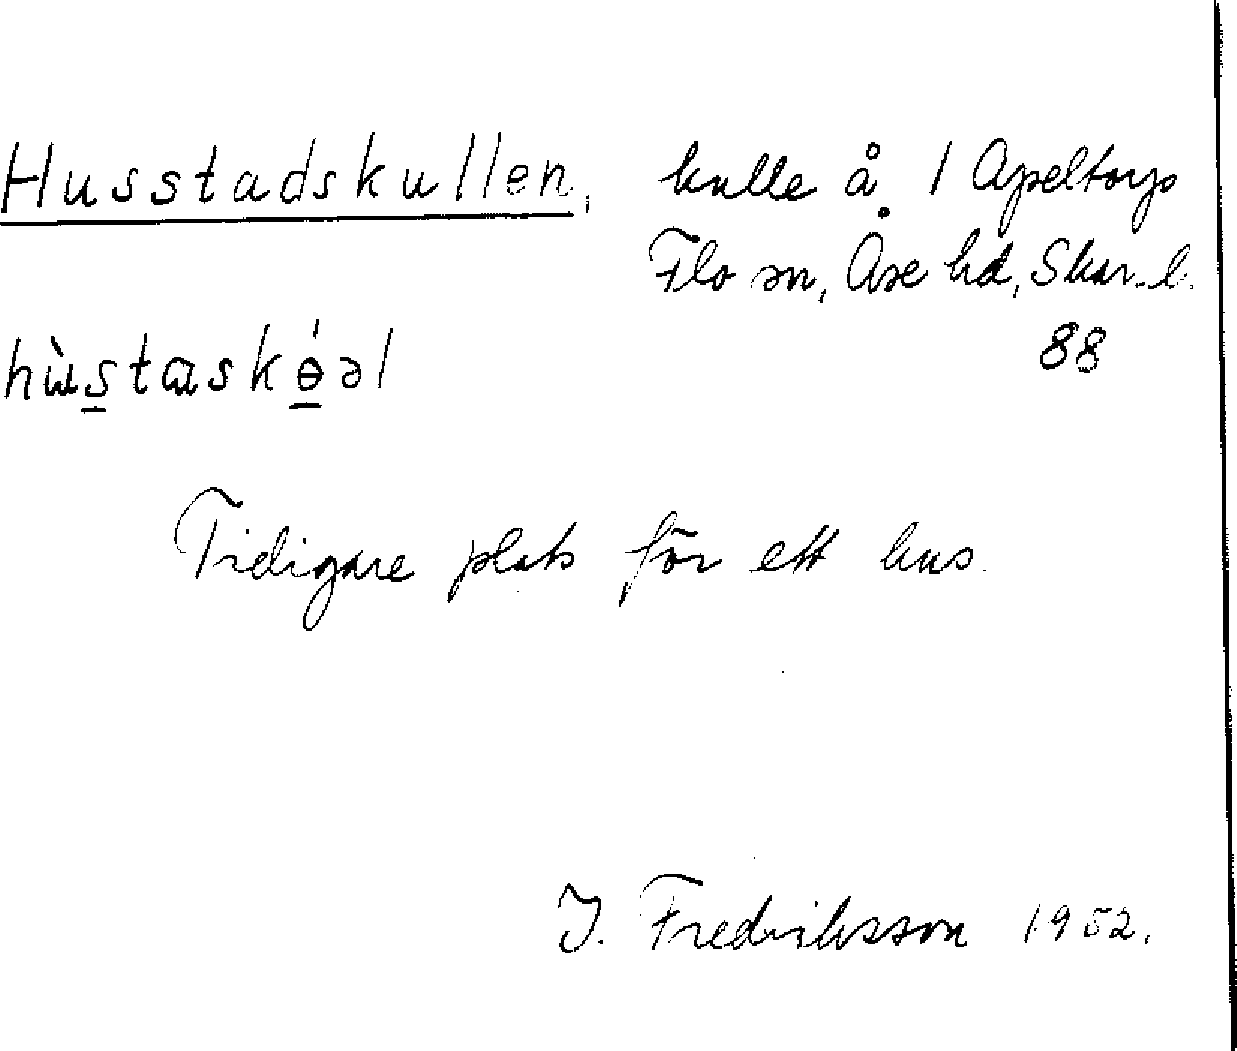 Husstadskullen, kulle å 1 Apeltorp
Flo sn, Åse hd, Skar. l.
88
hɯ̀s̱tɑskɵ̱́əl
Tidigare plats för ett hus.
J. Fredriksson 1952.